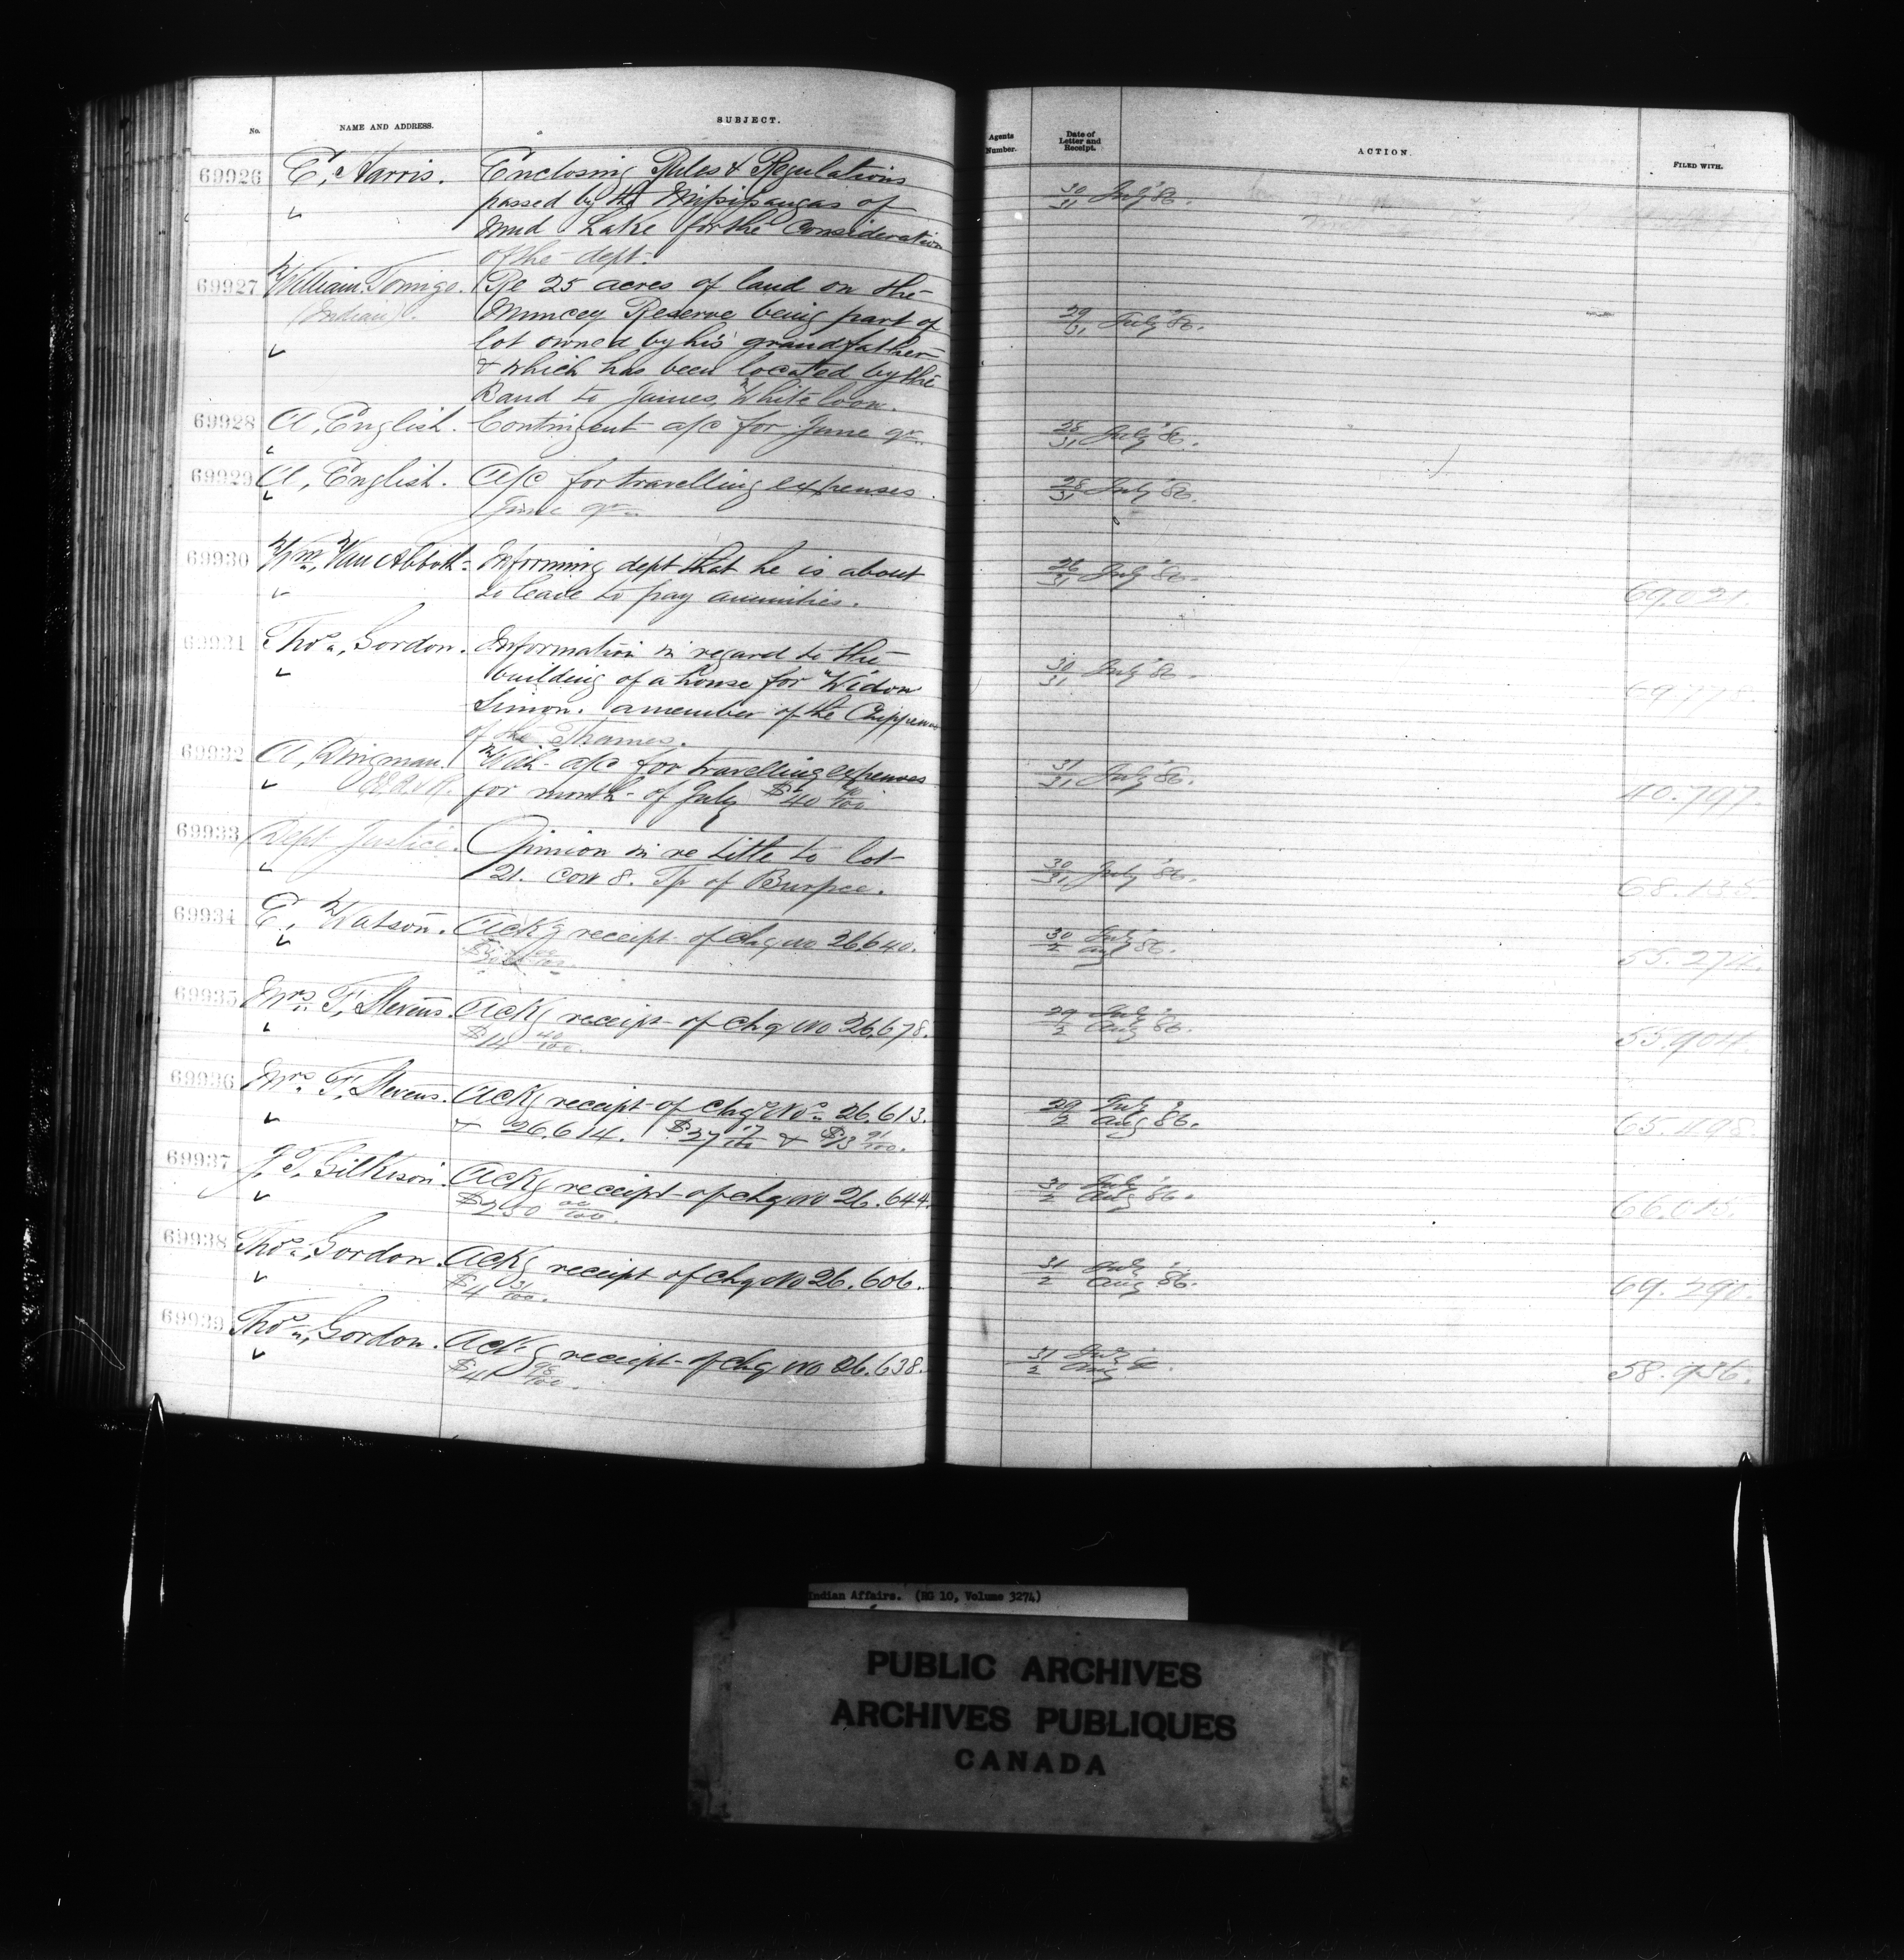 No.
NAME AND ADDRESS.
SUBJECT.
Agents Number.
Date of Letter and Receipt.
ACTION.
FILED WITH.
69926 E. Harris. Enclosing Rules & Regulations 30/31 July '86.
passed by the Missisaugas of
Mud Lake for the Consideration
of the dept.
69927 William Tomigo. Re 25 acres of land on the
(Indian). Muncey Reserve being part of 29/31 July '86.
lot owned by his grandfather
& which has been located by the
Band to James White loon.
69928 A. English. Contingent a/c for June qr. 28/31 July '86.
69929 A. English. a/c for travelling expenses. 28/31 July '86.
June qr.
69930 Wm. Van Abbott. Informing dept that he is about 26/31 July '86.
to leave to pay annuities. 69.021.
69931 Thos. Gordon. Information in regard to the 30/31 July '86.
building of a house for Widow
Simon. a member of the Chippewas
of the Thames.
69932 A. Dingman. With a/c for travelling expenses 31/31 July '86.
for month of July $40 /100 40.797.
69933 Dept Justice. Opinion in re title to lot 30/31 July '86.
21. con 8. Tp of Burpee. 68.138.
69934 E. Watson. Ackg receipt of chq no 26640. 30 July/2 Aug '86. 55.274.
69935 Mrs. F. Stevens. Ackg receipt of chq no 26,678. 29 July/2 Aug '86. 55.904.
$14 40/100.
69936 Mrs. F. Stevens. Ackg receipt of chqs Nos. 26,613. 29 July/2 Aug '86. 65.498.
& 26.614. $27 17/100 & $13 91/100.
69937 J. T. Gilkison. Ackg receipt of chq no 26.644. 30 July/2 Aug '86. 66.015.
$250 00/100.
69938 Thos. Gordon. Ackg receipt of chq no 26.606. 31 July/2 Aug '86. 69.290.
$4 31/100.
69939 Thos. Gordon. Ackg receipt of chq no 26.638. 31 July/2 Aug 58.936.
$4 98/100.
Indian Affairs. (RG 10, Volume 3274)
PUBLIC ARCHIVES
ARCHIVES PUBLIQUES
CANADA